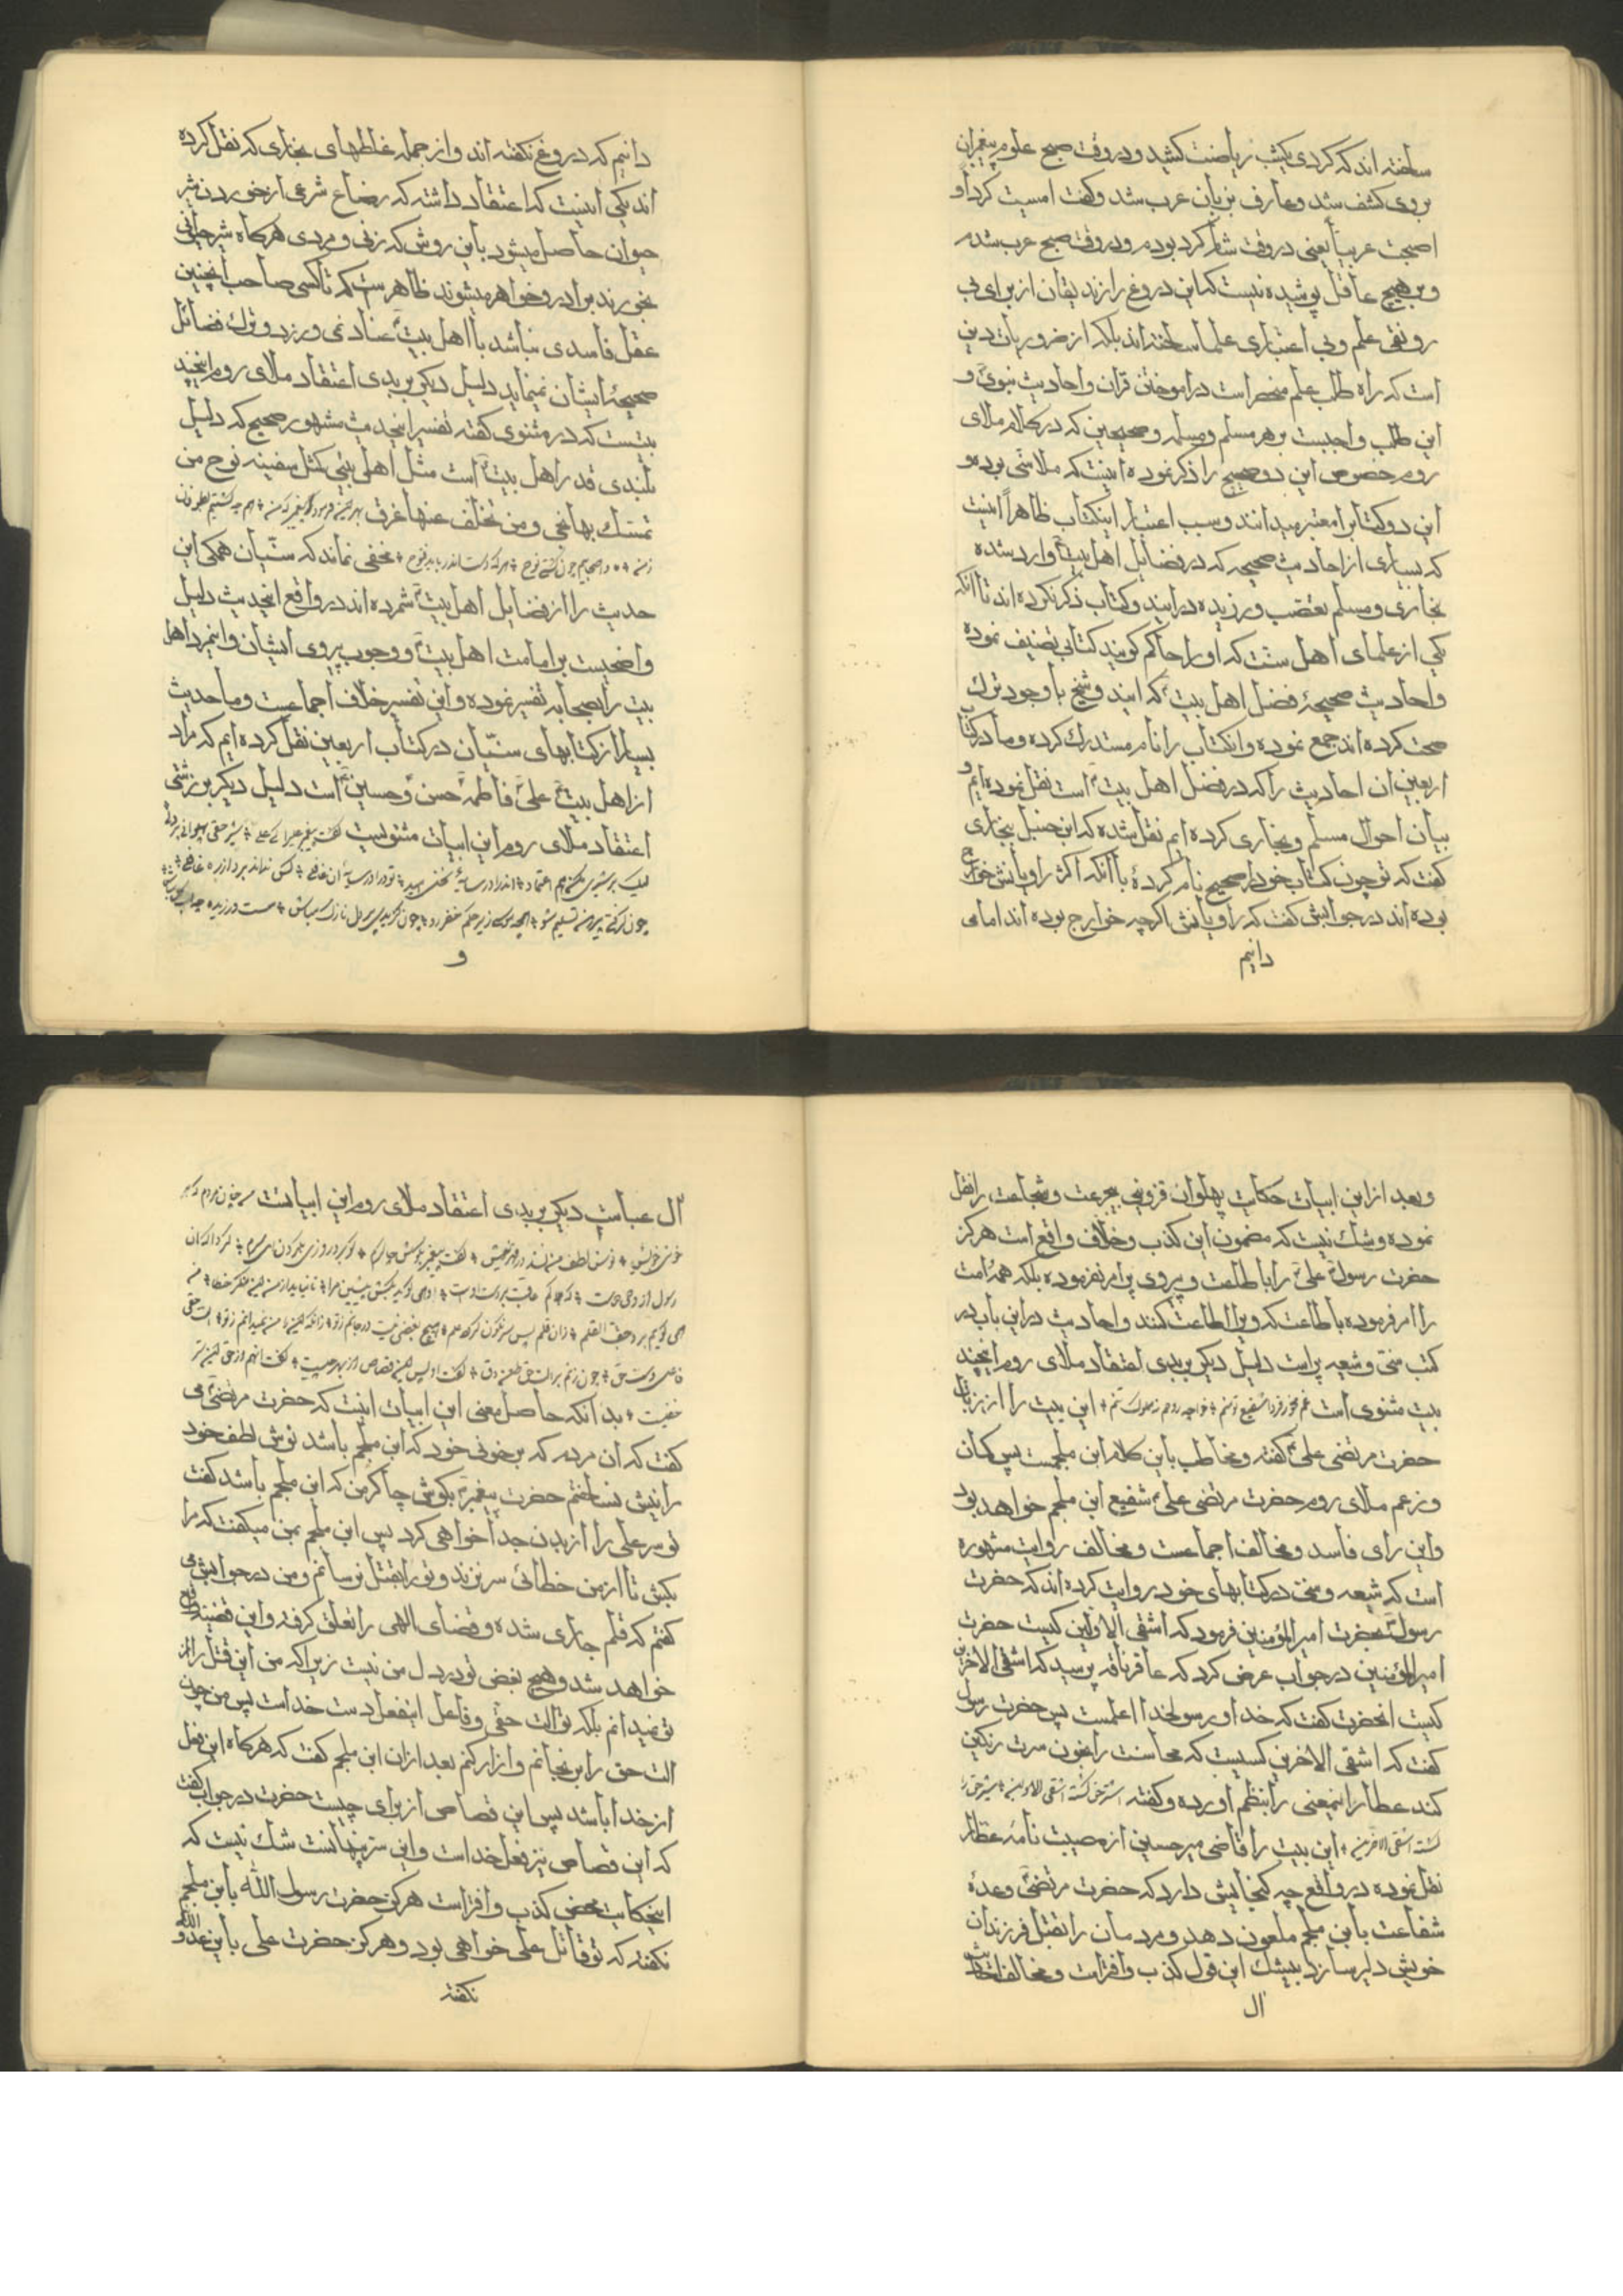 ساخته‌اند که کردی یکشب ریاضت کشید و در وقت صبح علوم پیغمبران
بروی کشف شد و عارف بزبان عرب شد و کفت امسیت کردیا و
اصبحت عربیا یعنی در وقت شام کرد بودم و در وقت صبح عرب شدم
و بر هیچ عاقل پوشیده نیست که این دروغ را زندیقان از برای بی
رونقی علم و بی اعتباری علما ساخته‌اند بلکه از ضروریات دین
است که راه طلب علم منحصر است در اموختن قران و احادیث نبوی و
این طلب واجبست بر هر مسلم و مسلمه و صحیحین که در کلام ملای
روم خصوص این دو صحیح را ذکر نموده اینست که ملا سنی بوده و
این دو کتابرا معتبر میدانند و سبب اعتبار اینکتاب ظاهراً اینست
که بسیاری از احادیث صحیحه که در فضایل اهل بیت وارد شده
بخاری و مسلم تعصب ورزیده در ایند و کتاب ذکر نکرده‌اند تا آنکه
یکی از علمای اهل سنت که او را حاکم کویند کتابی تصنیف نموده
و احادیث صحیحهٔ فضل اهل بیت که ایند و شیخ با وجود ترک
صحت کرده‌اند جمع نموده و اینکتاب را نام مستدرک کرده و ما در کتاب
اربعین ان احادیث را که در فضل اهل بیت است نقل نموده‌ایم و
بیان احوال مسلم و بخاری کرده ایم نقل شده که ابن حنبل ببخاری
کفت که تو چون کتاب خود را صحیح نام کردهٔ با آنکه اکثر راویانش خوارج
بوده‌اند در جوابش کفت که راویانش اکرچه خوارج بوده‌اند اما می
دانیم
دانیم که دروغ نکفته‌اند و از جمله غلطهای بخاری که نقل کرده
اند یکی اینست که اعتقاد داشته که رضاع شرعی از خوردن شیر
حیوان حاصل میشود باین روش که زنی و مردی هرکاه شیر حیوانی
بخورند برادر و خواهر میشوند ظاهر است که تا کسی صاحب اینچنین
عقل فاسدی نباشد با اهل بیت عناد نمی ورزد و ترک فضائل
صحیحهٔ ایشان نمینماید دلیل دیکر بر بدی اعتقاد ملای روم اینچند
بیتست که در مثنوی کفته تفسیر اینحدیث مشهور صحیح که دلیل
بلندی قدر اهل بیت است مثل اهل بیتی کمثل سفینه نوح من
تمسک بها نجی و من تخلف عنها غرق بهر این فرمود پیغمبر که من * همچو کشتیم بطوفان
زمن * ما و اصحابیم چون کشتی نوح * هرکه دست اندر زند یابد فتوح * مخفی نماند که سنیان همکی این
حدیث را از فضایل اهل بیت شمرده‌اند در واقع اینحدیث دلیل
واضحیست بر امامت اهل بیت و وجوب پیروی ایشان و اینمرد اهل
بیت را بصحابه تفسیر نموده و این تفسیر خلاف اجماعست و ما حدیث
بسیار از کتابهای سنیان در کتاب اربعین نقل کرده ایم که مراد
از اهل بیت علی فاطمه حسن و حسین است دلیل دیکر بر زشتی
اعتقاد ملای روم این ابیات مثنویست کفت پیغمبر علی را کای علی * شیر حقی پهلوانی پر دلی
لیک بر شیری مکن هم اعتماد * اندر ا در سایهٔ نخل امید * تو درا در سایهٔ آن عاقلی * کش نداند برد از ره ناقلی
چون کرفتی پیر هین تسلیم شو * همچو موسی زیر حکم خضر رو * چون کزیدی پیر نازک دل مباش * سست و رزیده
و
و بعد از این ابیات حکایت پهلوان قزوینی بیجرعت و شجاعت را نقل
نموده و شک نیست که مضمون این کذب و خلاف واقع است هرکز
حضرت رسول علی را باطاعت و پیروی پیر امر نفرموده بلکه همهٔ امت
را امر فرموده باطاعت که ویرا اطاعت کنند و احادیث در این باب در
کتب سنی و شیعه پر است دلیل دیکر بر بدی اعتقاد ملای روم اینچند
بیت مثنوی است غم مخور فردا شفیع تو منم * خواجه روحم نه مملوک تنم * این بیت را از زبان
حضرت مرتضی علی کفته و مخاطب باین کلام ابن ملجمست پس کمان
و زعم ملای روم حضرت مرتضی علی شفیع ابن ملجم خواهد بود
و این رای فاسد و مخالف اجماعست و مخالف روایت مشهوره
است که شیعه و سنی در کتابهای خود روایت کرده‌اند که حضرت
رسول بحضرت امیر المؤمنین فرمود که اشقی الاولین کیست حضرت
امیر المؤمنین در جواب عرض کرد که عاقر ناقه پرسید که اشقی الاخرین
کیست انحضرت کفت که خدا و رسولخدا اعلمست پس حضرت رسول
کفت که اشقی الاخرین کسیست که محاسنت را بخون سرت رنکین
کند عطار اینمعنی را بنظم اورده و کفته اشتر حق کشته اشقی الاولین * شیر حق را
کشته اشقی الاخرین * این بیت را قاضی میر حسین از مصیبت نامهٔ عطار
نقل نموده در واقع چه کنجایش دارد که حضرت مرتضی وعدهٔ
شفاعت بابن ملجم ملعون دهد و مردمان را بقتل فرزندان
خویش دلیر سازد بیشک این قول کذب و افتراست و مخالف احادیث
ال
ال عباست دیکر بر بدی اعتقاد ملای روم این ابیاتست من چنان مردم که بر
خونی خویش * نوش لطف من نشد در قهر نیش * کفت پیغمبر بکوش چاکرم * کو برد روزی ز کردن این سرم * کرد اکه ان
رسول از وحی دوست * که هلاکم عاقبت بر دست اوست * او همی کوید بکش پیشین مرا * تا نیاید از من این منکر خطا * من
همی کویم برو جف القلم * زان قلم بس سرنکون کردد علم * هیچ بغضی نیست در جانم ز تو * زانکه این را من نمیدانم ز تو * الت حقی
فاعل دست حق * چون زنم بر الت حق طعن و دق * کفت او پس این قصاص از بهر چیست * کفت انهم از حق و این سر
خفیست * بدانکه حاصل معنی این ابیات اینست که حضرت مرتضی می
کفت که ان مردم که بر خونی خود که ابن ملجم باشد نوش لطف خود
را نیش نساختم حضرت پیغمبر بکوش چاکر من که ابن ملجم باشد کفت
تو سر علی را از بدن جدا خواهی کرد پس ابن ملجم بمن میکفت که مرا
بکش تا از من خطائی سر نزند و تو را بقتل نرسانم و من در جوابش می
کفتم که قلم جاری شده و قضای الهی را تعلق کرفته و این قضیه واقع
خواهد شد و هیچ بغض تو در دل من نیست زیرا که من این قتل را از
تو نمیدانم بلکه تو الت حقی و فاعل اینفعل دست خداست پس من چون
الت حق را برنجانم و ازار کنم بعد از ان ابن ملجم کفت که هرکاه این فعل
از خدا باشد پس این قصاص از برای چیست حضرت در جواب کفت
که این قصاص نیز فعل خداست و این سر پنهانست شک نیست که
اینحکایت محض کذب و افتراست هرکز حضرت رسول الله بابن ملجم
نکفته که تو قاتل علی خواهی بود و هرکز حضرت علی باین عدو الله
نکفته